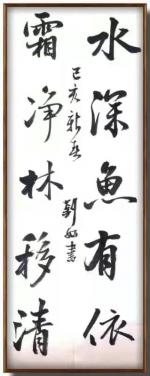 水深魚有依
霜净林移清
己亥新春